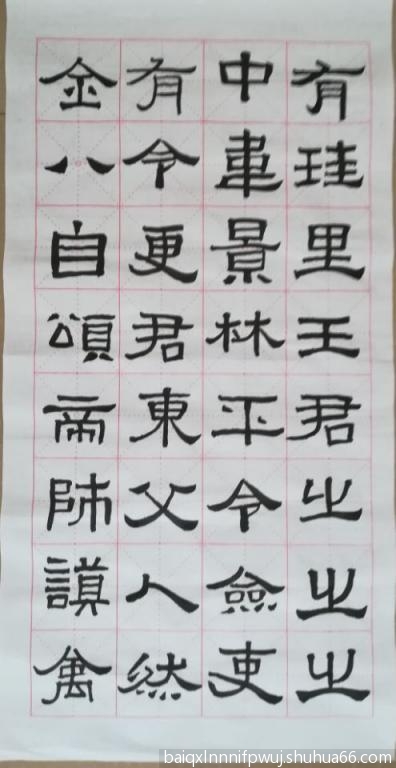 有珪里王君之之之
中景林平令僉吏
有令更君東父人然
金八自頌帝師謨禽
baiqxlnnnifpwuj.shuhua66.com